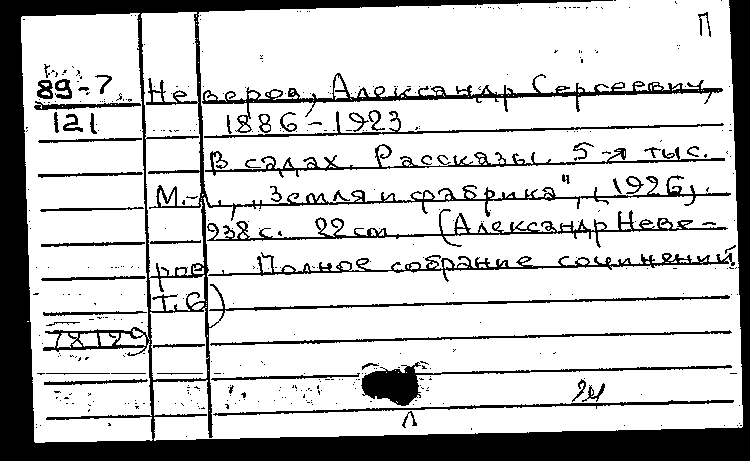 П
89-7
121
Неверов, Александр Сергеевич,
1886-1923.
В садах. Рассказы. 5-я тыс.
М.-Л., „Земля и фабрика", (1926).
238 с. 22 см. (Александр Неве-
ров. Полное собрание сочинений.
Т. 6)
78129